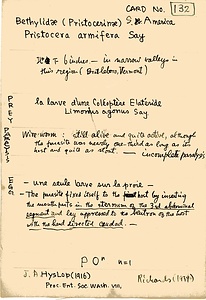 CARD No. 132
Bethylidæ (Pristocerinæ) S. America
Pristocera armifera Say
in narrow valleys in
this region (Brattleboro, Vermont)
PREY
la larve d'un Coléoptère Elateride
Limonius agonus Say
PARALYSIS
Wire-worm: still alive and quite active, although
the parasite was nearly one-third as long as its
host and quite as stout. — incomplete paralysis
EGG
— une seule larve sur la proie —
- The parasite fixed itself to the host by inserting
the mouthparts in the sternum of the 3rd abdominal
segment and lay appressed to the venter of the host
with the head directed caudad. —
PO° n=1
J. A. Hyslop (1916)
Proc. Ent. Soc. Wash. VIII,
Richards (1939)